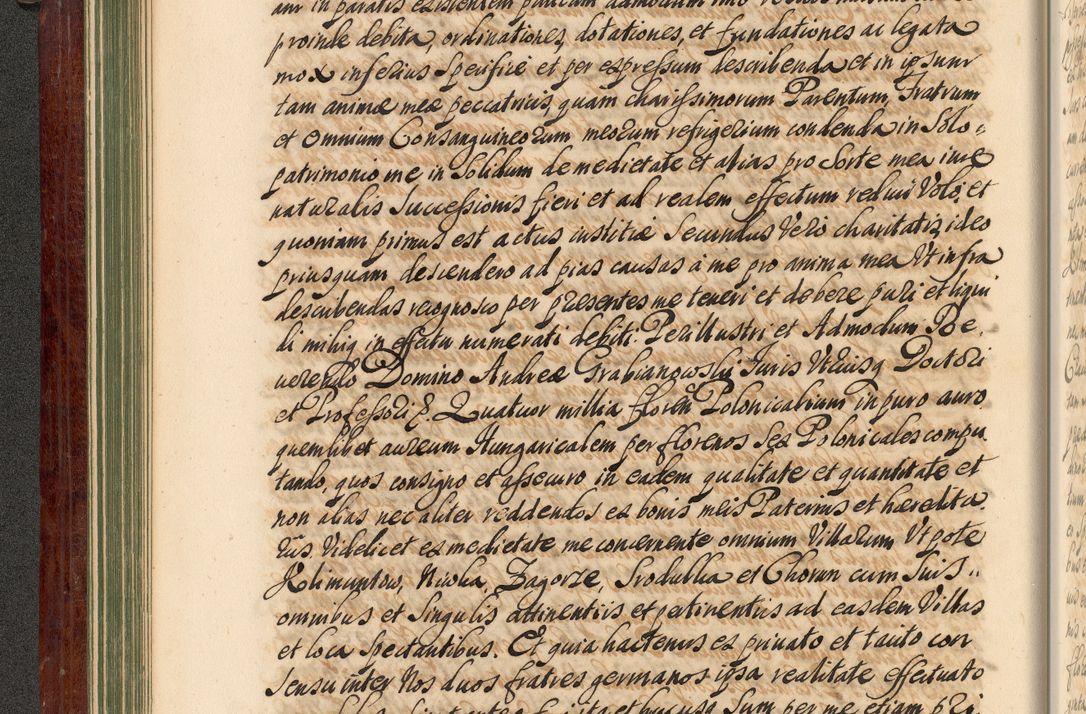 proinde debita, ordinationes, dotationes, et fundationes ac legata
mox inferius specificè et per expressum describenda et in ipsum
tam animæ meæ peccatricis, quam charissimorum Parentum, Fratrum
et omnium Consanguineorum meorum refrigerium condenda in Solo
patrimonio me in solidum de medietate et alias pro sorte mea iure
naturalis successionis fieri et ad realem effectum reduci Volo, et
quoniam primus est actus iustitiæ Secundus Vero charitatis, ideo
priusquam descendero ad pias causas à me pro anima mea Ut infra
describendas recognosco per præsentes me teneri et debere puri et liqui
di mihiq in effectu numerati debiti. Perillustri et Admodum Re,
uerendo Domino Andreæ Grabianowski Juris Utriusq Doctori
et Professori. Quatuor millia floren Polonicalium in puro auro
quemlibet aureum Hungaricalem per florenos sex Polonicales compu
tando, quos consigno et assecuro in eadem qualitate et quantitate et
non alias nec aliter reddendos ex bonis meis Paternis et hæredita
riis Videlicet ex medietate me concernente omnium Villarum Utpote
Klimuntow, Niwka, Zagorze, Srodulka et Choron cum suis
omnibus et Singulis attinentiis et pertinentiis ad easdem Villas
et loca spectantibus. Et quia hactenus ex priuato et tacito con
sensu inter Nos duos fratres germanos ipsa realitate effectuato